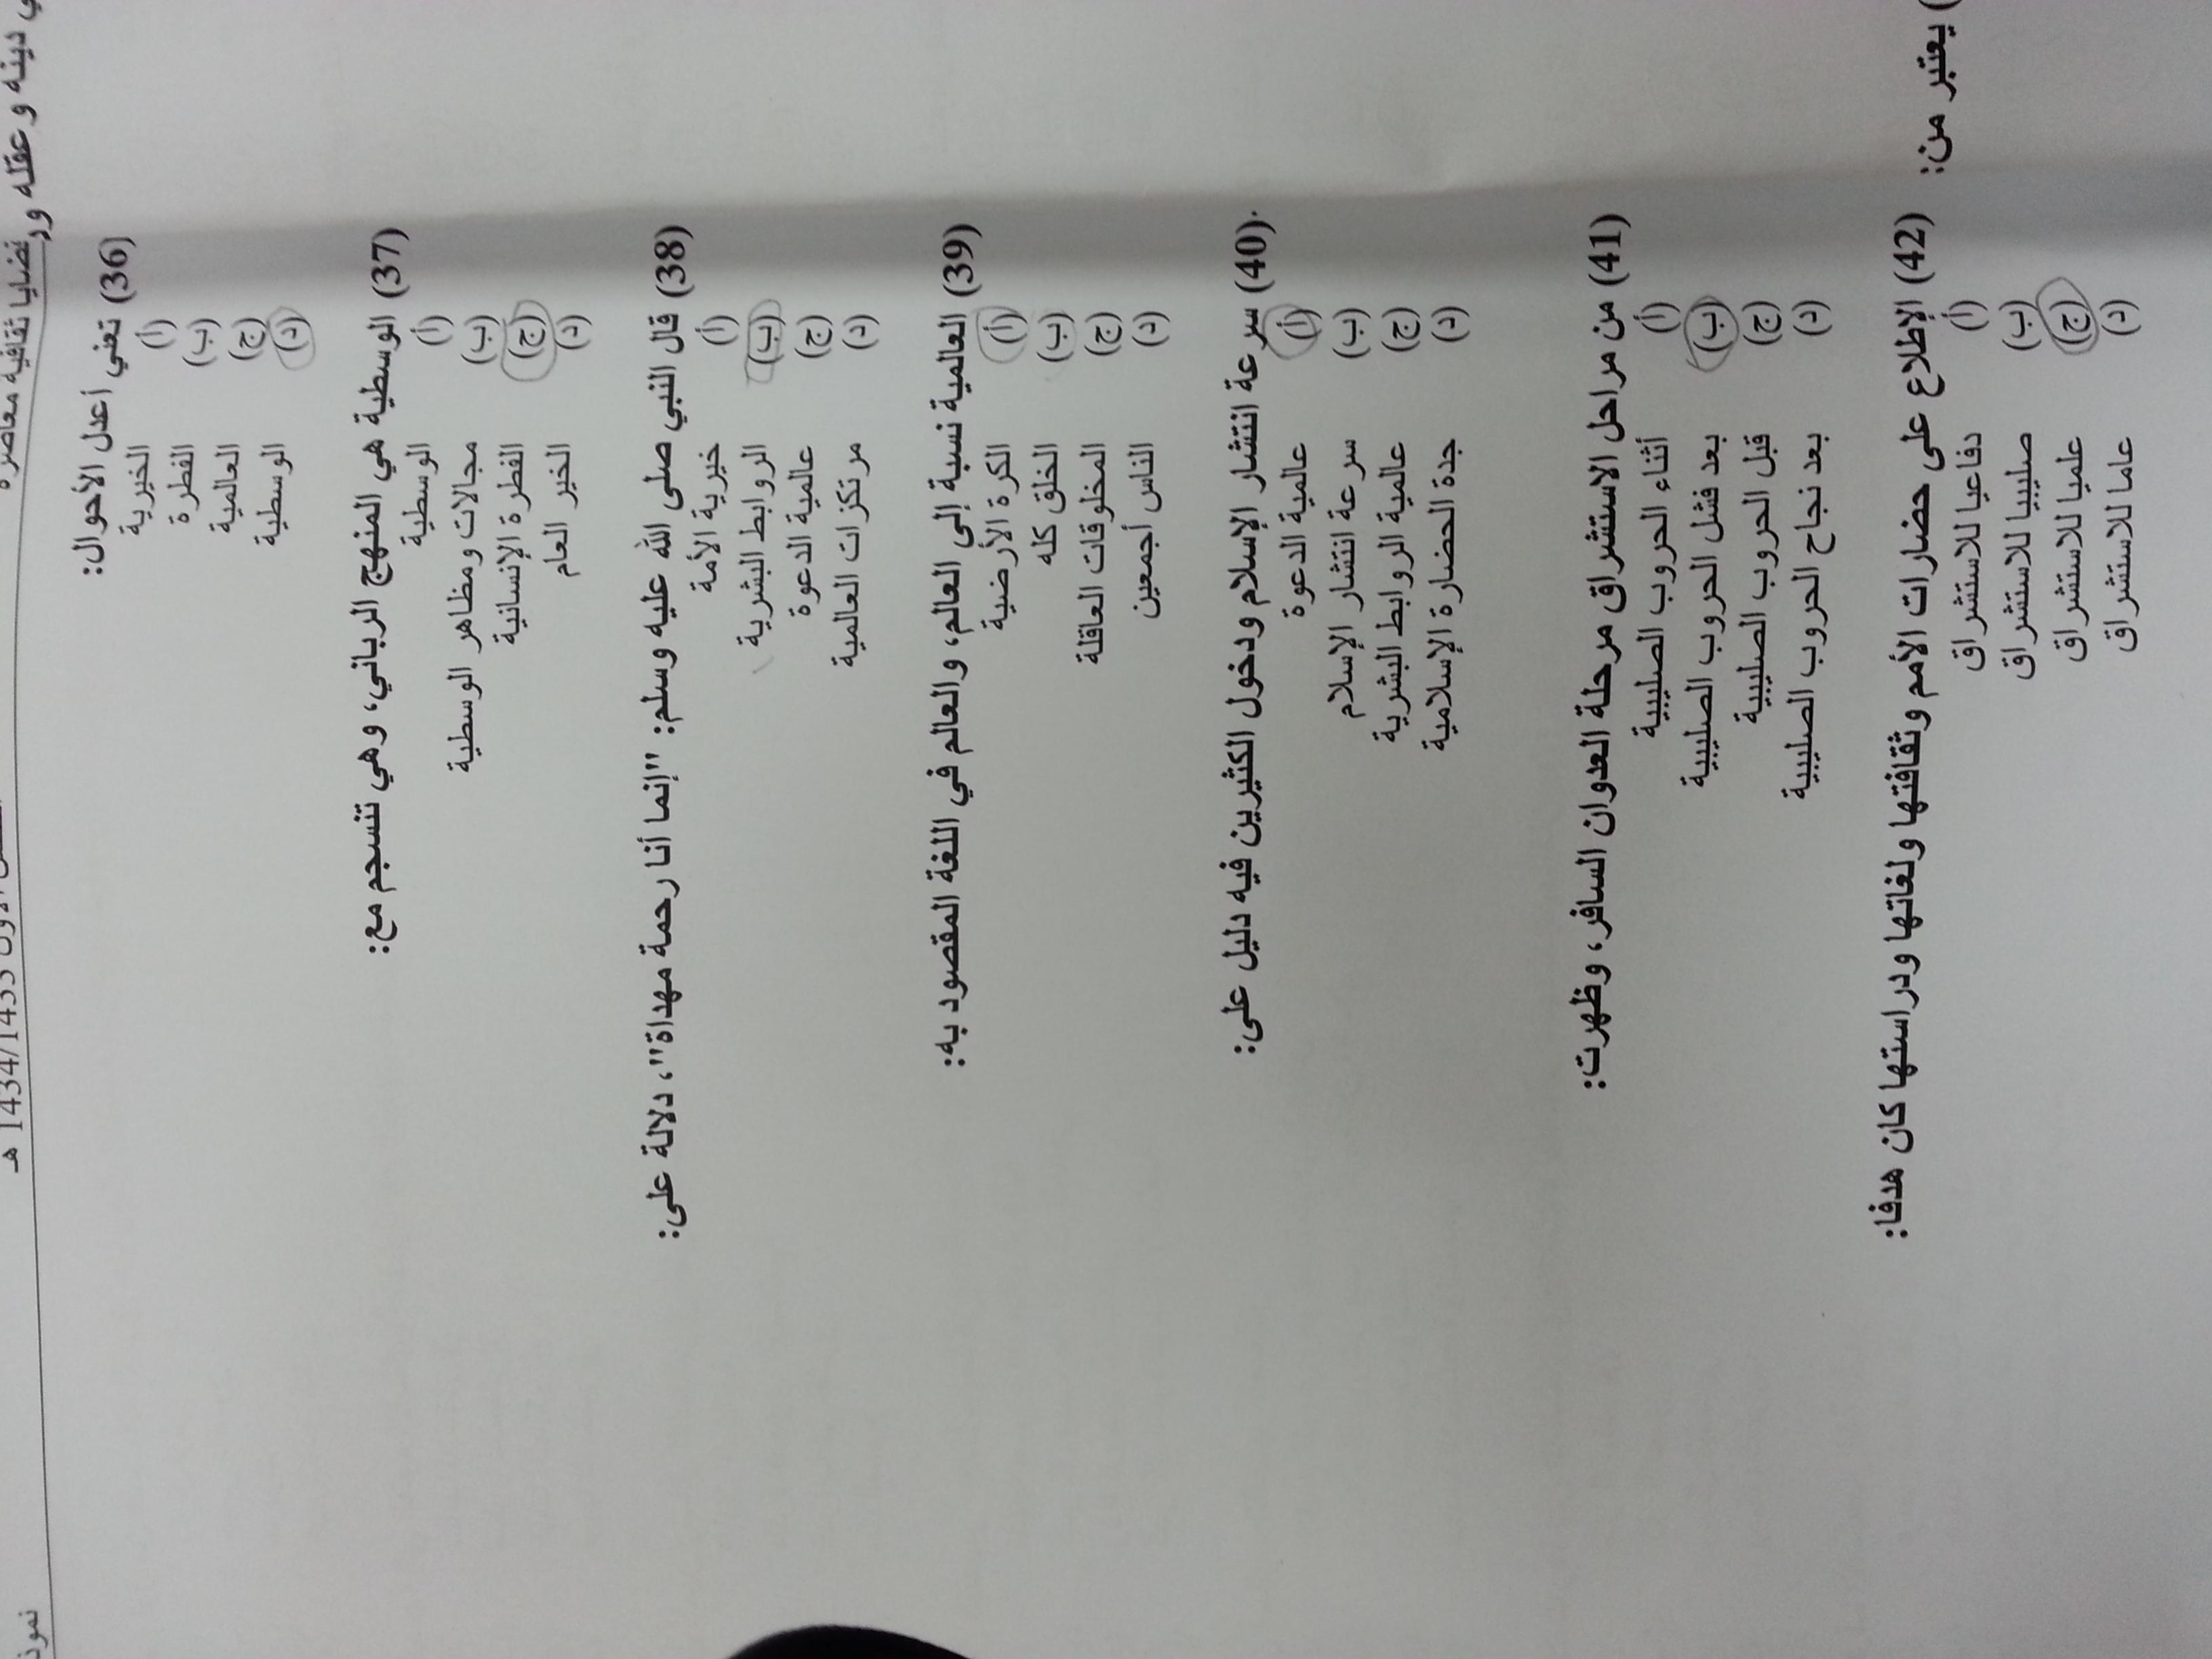 قضايا ثقافية معاصرة
1434/1433 هـ
(36) تعني أعدل الأحوال:
(أ) الخيرية
(ب) الفطرة
(ج) العالمية
(د) الوسطية
(37) الوسطية هي المنهج الرباني، وهي تنسجم مع:
(أ) الوسطية
(ب) مجالات ومظاهر الوسطية
(ج) الفطرة الإنسانية
(د) الخير العام
(38) قال النبي صلى الله عليه وسلم: "إنما أنا رحمة مهداة"، دلالة على:
(أ) خيرية الأمة
(ب) الروابط البشرية
(ج) عالمية الدعوة
(د) مرتكزات العالمية
(39) العالمية نسبة إلى العالم، والعالم في اللغة المقصود به:
(أ) الكرة الأرضية
(ب) الخلق كله
(ج) المخلوقات العاقلة
(د) الناس أجمعين
(40). سرعة انتشار الإسلام ودخول الكثيرين فيه دليل على:
(أ) عالمية الدعوة
(ب) سرعة انتشار الإسلام
(ج) عالمية الروابط البشرية
(د) جدة الحضارة الإسلامية
(41) من مراحل الاستشراق مرحلة العدوان السافر، وظهرت:
(أ) أثناء الحروب الصليبية
(ب) بعد فشل الحروب الصليبية
(ج) قبل الحروب الصليبية
(د) بعد نجاح الحروب الصليبية
(42) الإطلاع على حضارات الأمم وثقافتها ولغاتها ودراستها كان هدفا:
(أ) دفاعيا للاستشراق
(ب) صليبيا للاستشراق
(ج) علميا للاستشراق
(د) عاما للاستشراق
دينه وعقله
يعتبر من: